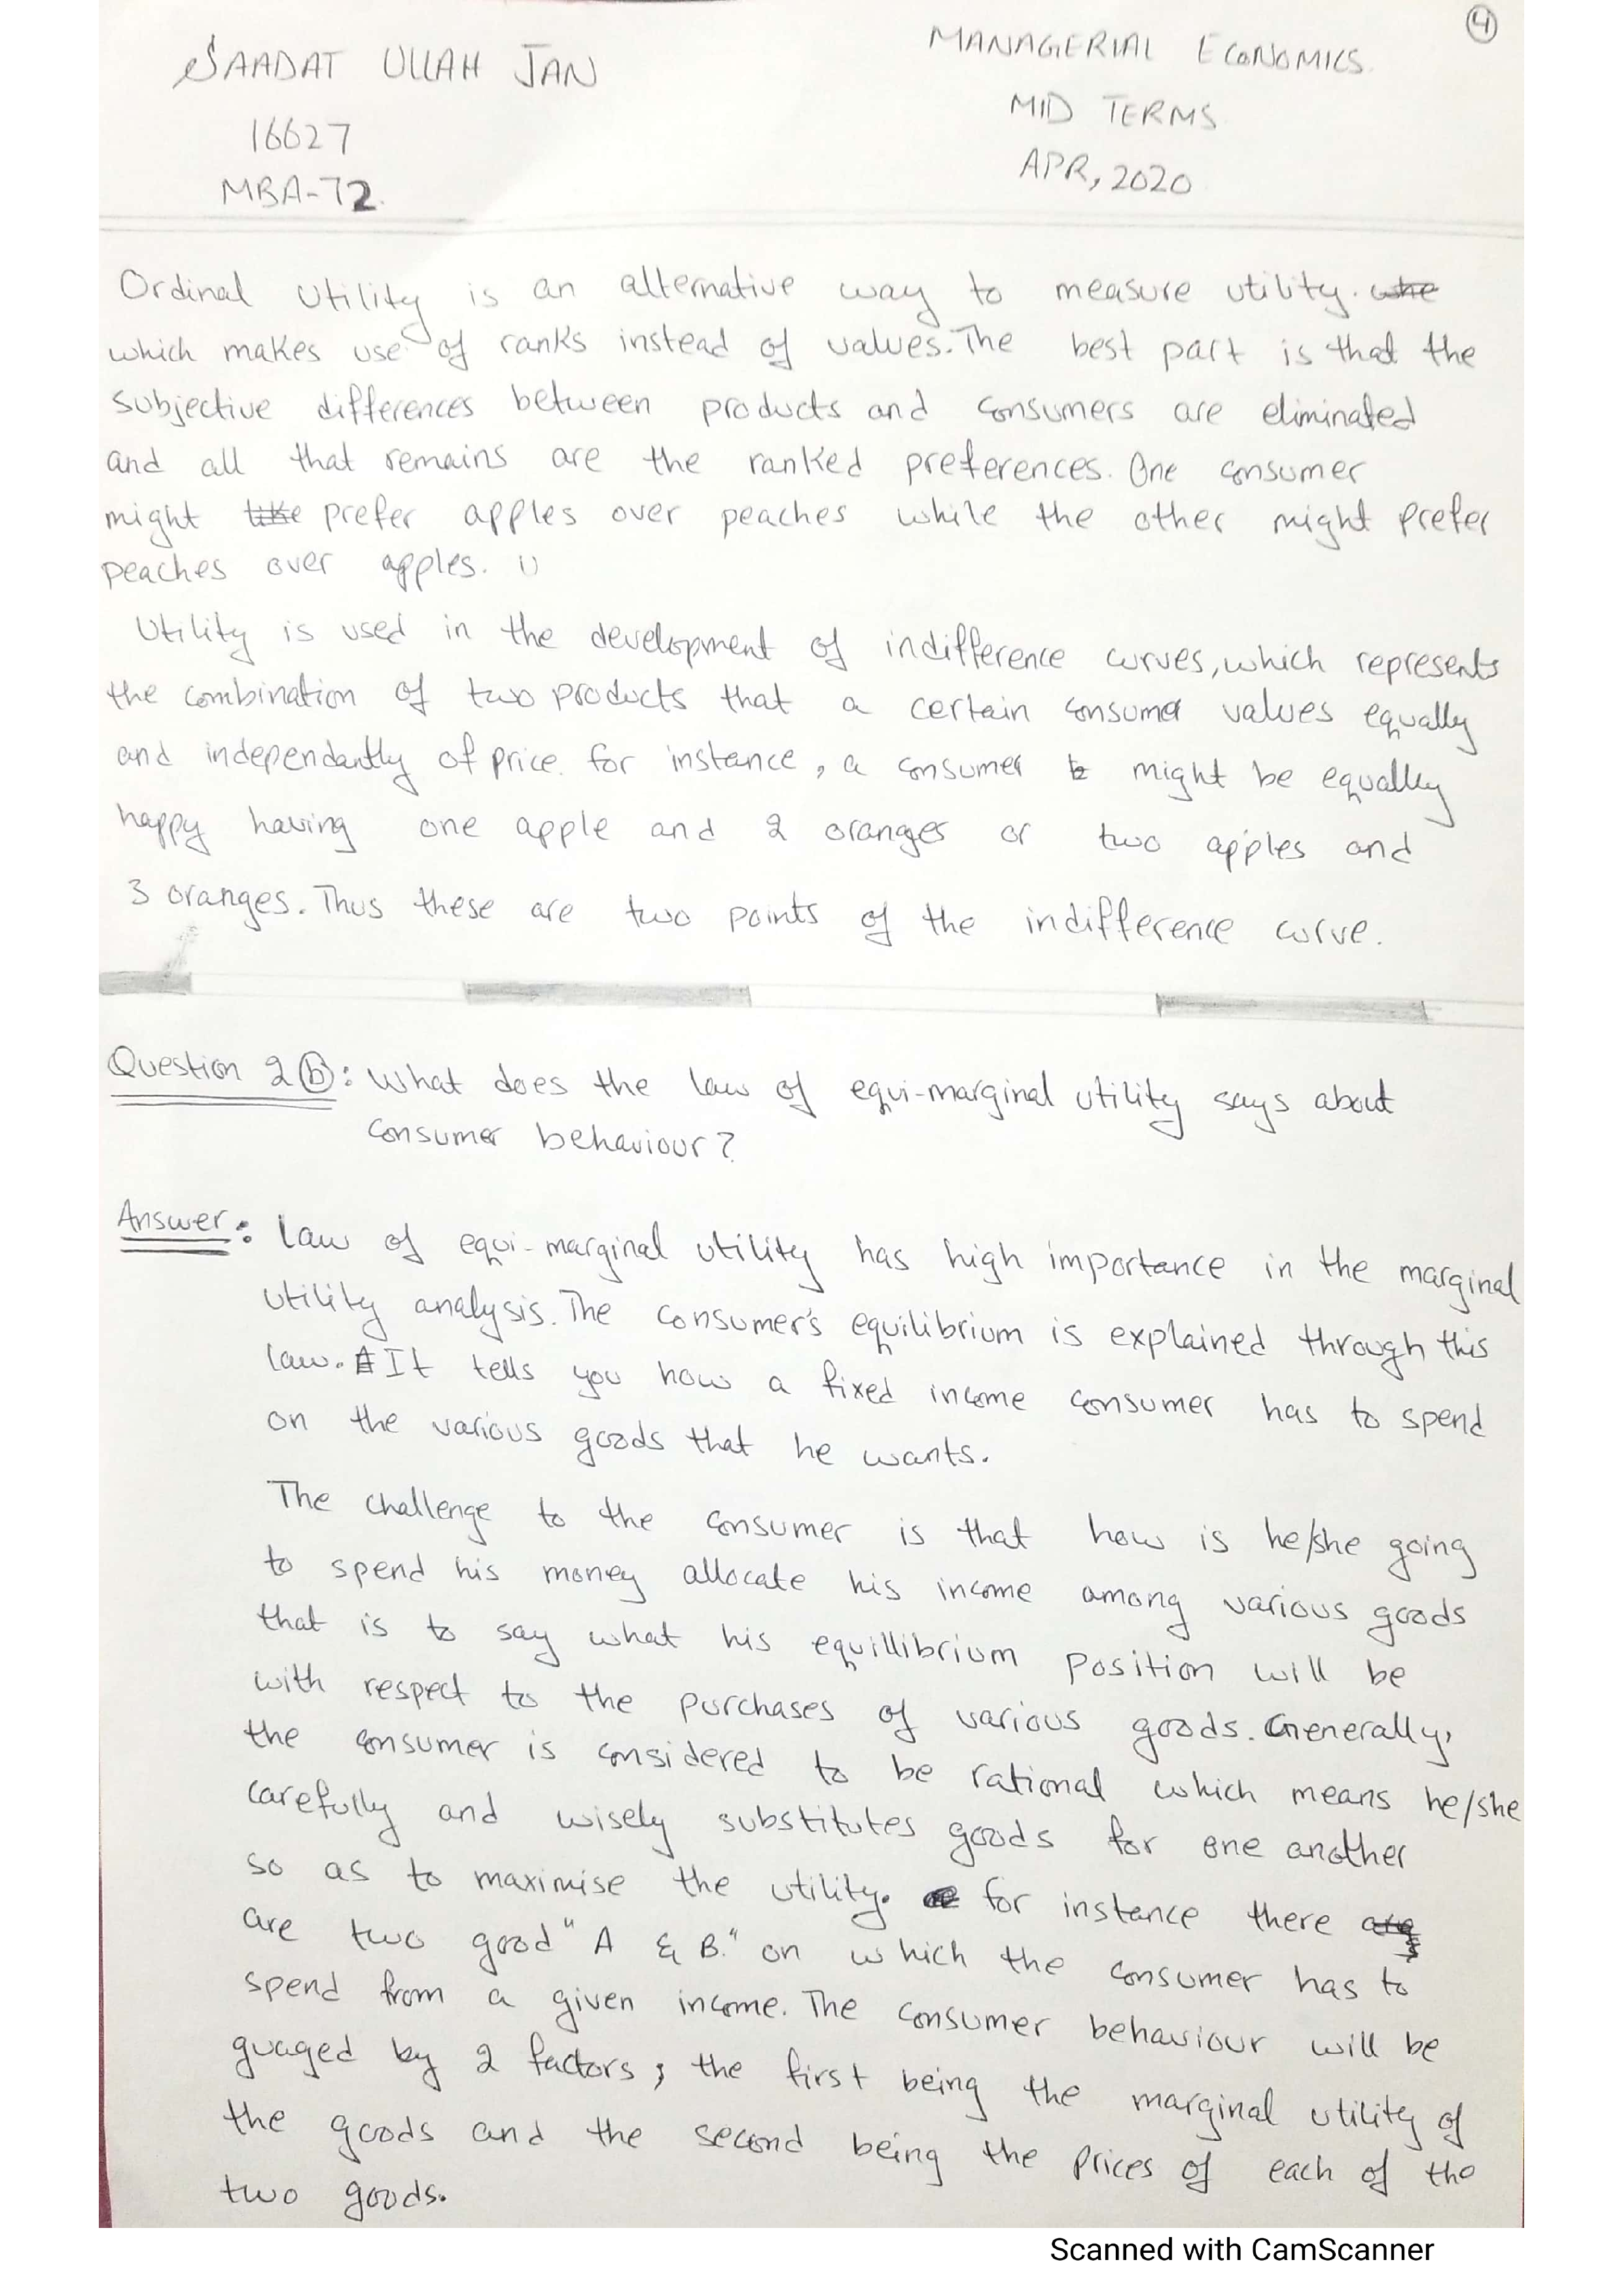 4
SAADAT ULLAH JAN
16627
MBA-72.
MANAGERIAL ECONOMICS.
MID TERMS
APR, 2020
Ordinal Utility is an alternative way to measure utility. whe
which makes use of ranks instead of values. The best part is that the
subjective differences between products and consumers are eliminated
and all that remains are the ranked preferences. One consumer
might like prefer apples over peaches while the other might prefer
peaches over apples. U
Utility is used in the development of indifference curves, which represents
the combination of two products that a certain consumer values equally
and independantly of price. for instance, a consumer b might be equalley
happy having one apple and 2 oranges or two apples and
3 oranges. Thus these are two points of the indifference curve.
Question 2 (b): What does the law of equi-marginal utility says about
consumer behaviour?
Answer: Law of equi-marginal utility has high importance in the marginal
utility analysis. The consumer's equilibrium is explained through this
law. It tells you how a fixed income consumer has to spend
on the various goods that he wants.
The challenge to the consumer is that how is he/she going
to spend his money allocate his income among various goods
that is to say what his equillibrium position will be
with respect to the purchases of various goods. Generally,
the consumer is considered to be rational which means he/she
carefully and wisely substitutes goods for one another
so as to maximise the utility. for instance there are
are two good "A & B." on which the consumer has to
spend from a given income. The consumer behaviour will be
guaged by 2 factors; the first being the marginal utility of
the goods and the second being the prices of each of the
two goods.
Scanned with CamScanner